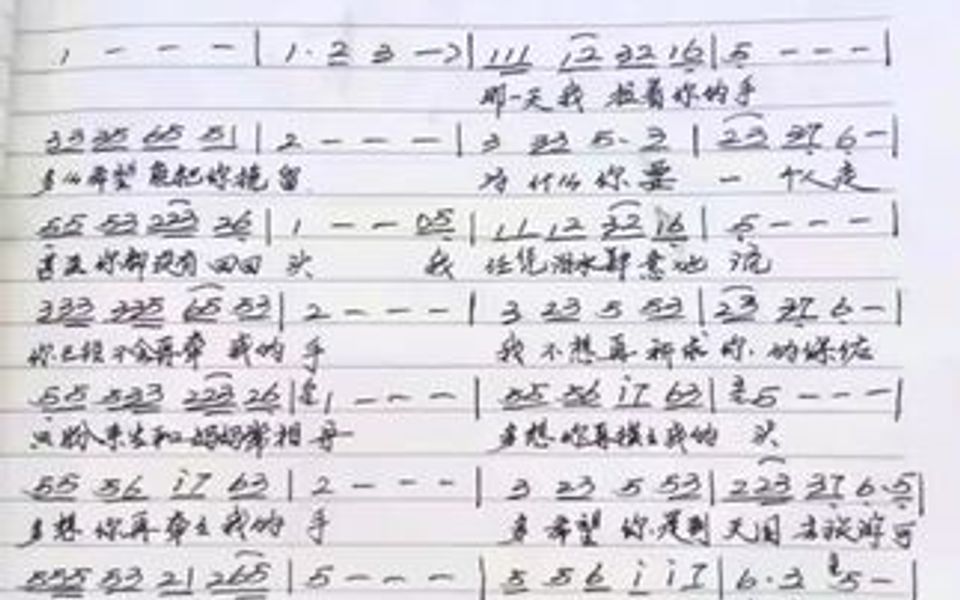 1 - - - | 1· 2 3 - ) | 111 12 32 16 | 5 - - - |
那一天我 拉着你的手
33 35 65 51 | 2 - - - | 3 33 5· 3 | 23 37 6 - |
多么希望 能把你挽留 为什么你要 一个人走
55 53 223 26 | 1 - - 05 | 11 12 32 16 | 5 - - - |
你都没有回回头 我 任凭泪水 意地流
333 335 65 53 | 2 - - - | 3 23 5 53 | 23 37 6 - |
你已经不会再牵 我的手 我不想再祈求你的
55 533 223 26 | 1 - - - | 55 56 i7 63 | 5 - - - |
只盼来生和妈妈常相 多想你再摸 我的头
55 56 i7 63 | 2 - - - | 3 23 5 53 | 223 37 6·5 |
多想你再牵 我的手 多希望你是到天国去旅游可
555 53 21 265 | 5 - - - | 5 56 i i7 | 6·3 5 - |